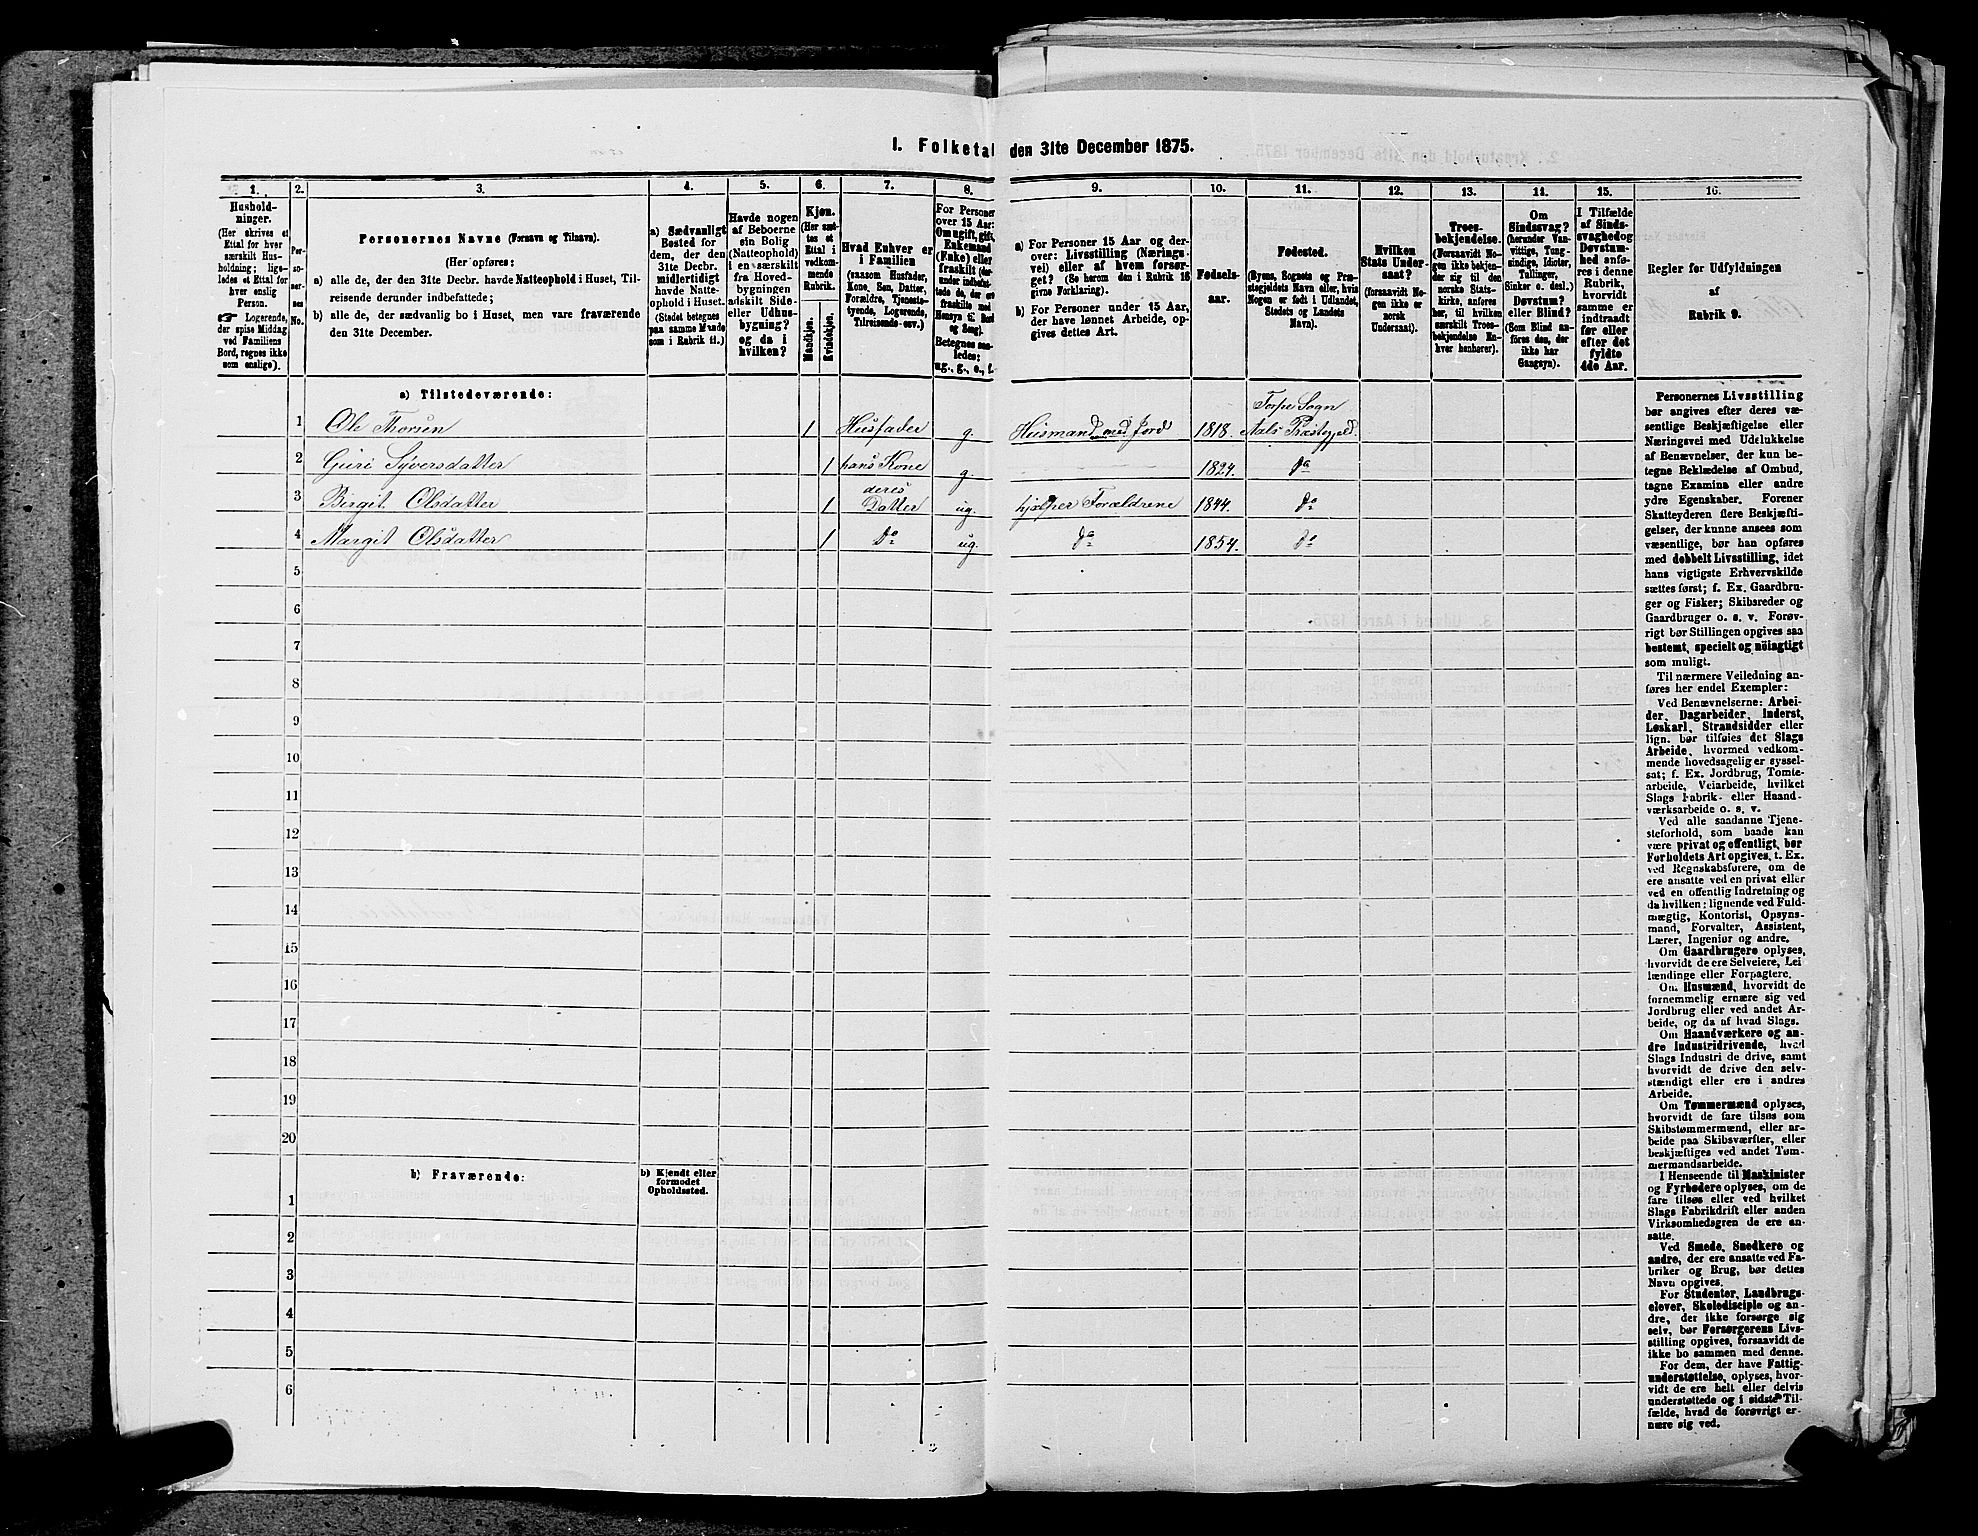 1. Folketal den 31te December 1875.
1. 2. 3. 4. 5. 6. 7. 8. 9. 10. 11. 12. 13. 14. 15. 16.
Hushold-
ninger.
(Her skrives et
Ettal for hver
særskilt Hus-
holdning; lige-
ledes et Ettal
for hver
enslig
Person.
☞ Logerende,
der spise Middag
ved Familiens
Bord, regnes ikke
som enslige).
Per-
so-
ner-
nes
No.
Personernes Navne (Fornavn og Tilnavn).
(Her opføres:
a) alle de, der den 31te Decbr. havde Natteophold i Huset, Til-
reisende derunder indbefattede;
b) alle de, der sædvanlig bo i Huset, men vare fraværende
den 31te December.
a) Sædvanligt
Bosted for
dem, der den
31te Decbr.
midlertidigt
havde Natte-
ophold i Huset.
(Stedet betegnes
paa samme Maade
som i Rubrik 11.)
Havde nogen
af Beboerne
sin Bolig
(Natteophold)
i en særskilt
fra Hoved-
bygningen
adskilt Side-
eller Udhus-
bygning?
og da i
hvilken?
Kjøn.
(Her sæt-
tes et
Ettal i
vedkom-
mende
Rubrik.
Mandkjøn.
Kvindekjøn.
Hvad Enhver er
i Familien
(saasom Husfader,
Kone, Søn, Datter,
Forældre, Tjeneste-
tyende, Logerende,
Tilreisende osv.)
For Personer
over 15 Aar:
Om ugift, gift,
Enkemand
(Enke) eller
fraskilt (der-
under indbefat-
tede de, der ere
fraskilte med
Hensyn til Bord
og Seng).
Betegnes saa-
ledes:
ug., g., e., f.
a) For Personer 15 Aar og der-
over: Livsstilling (Nærings-
vei) eller af hvem forsør-
get? (Se herom den i Rubrik 16
givne Forklaring).
b) For Personer under 15 Aar,
der have lønnet Arbeide, op-
gives dettes Art.
Fødsels-
aar.
Fødested.
(Byens, Sognets og Præ-
stegjeldets Navn eller, hvis
Nogen er født i Udlandet,
Stedets og Landets
Navn).
Hvilken
Stats Under-
saat?
(foraavidt No-
gen ikke er
norsk
Undersaat).
Troes-
bekjendelse.
(Forsaavidt No-
gen ikke bekjen-
der sig til den
norske Stats-
kirke, anføres
her, til hvilken
særskilt Troes-
bekjendelse En-
hver henhører).
Om
Sindssvag?
(herunder Van-
vittige, Tung-
sindige, Idioter,
Tullinger,
Sinker o. desl.)
Døvstum?
eller Blind?
(Som Blind an-
føres den, der
ikke har
Gangsyn).
I Tilfælde
af Sinds-
svaghed og
Døvstum-
hed anfø-
res i denne
Rubrik,
hvorvidt
samme er
indtraadt
før eller
efter det
fyldte
4de Aar.
Regler for Udfyldningen
af
Rubrik 9.
a) Tilstedeværende:
1 Ole Thorsen 1 Husfader g. Husmand med Jord 1818. Torpe Sogn
Aals Præstegjeld.
2 Guri Syversdatter 1 hans Kone g 1824. Do
3 Birgit Olsdatter 1 deres
Datter ug. hjælper Forældrene 1844. Do
4 Margit Olsdatter 1 Do ug. Do 1854. Do
5
6
7
8
9
10
11
12
13
14
15
16
17
18
19
20
b) Fraværende:
b) Kjendt eller
formodet
Opholdssted.
1
2
3
4
5
6
Personernes Livsstilling
bør angives efter deres væ-
sentlige Beskjæftigelse eller
Næringsvei med Udelukkelse
af Benævnelser, der kun be-
tegne Beklædelse af Ombud,
tagne Examina eller andre
ydre Egenskaber. Forener
Skatteyderen flere Beskjæfti-
gelser, der kunne ansees som
væsentlige, bør han opføres
med dobbelt Livsstilling, idet
hans vigtigste Erhvervskilde
sættes først; f. Ex. Gaardbru-
ger og Fisker; Skibsreder og
Gaardbruger o. s. v. Forøv-
rigt bør Stillingen opgives saa
bestemt, specielt og nøiagtigt
som muligt.
Til nærmere Veiledning an-
føres her endel Exempler:
Ved Benævnelserne: Arbei-
der, Dagarbeider, Inderst,
Løskarl, Strandsidder eller
lign. bør tilføies det Slags
Arbeide, hvormed vedkom-
mende hovedsagelig er syssel-
sat; f. Ex. Jordbrug, Tomte-
arbeide, Veiarbeide, hvilket
Slags Fabrik- eller Haand-
værksarbeide o. s. v.
Ved alle saadanne Tjene-
steforhold, som baade kan
være privat og offentligt, bør
Forholdets Art opgives, t. Ex.
ved Regnskabsførere, om de
ere ansatte ved en privat eller
ved en offentlig Indretning og
da hvilken; lignende ved Fuld-
mægtig, Kontorist, Opsyns-
mand, Forvalter, Assistent,
Lærer, Ingeniør og andre.
Om Gaardbrugere oplyses,
hvorvidt de ere Selveiere, Lei-
lændinge eller Forpagtere.
Om Husmænd, hvorvidt de
fornemmelig ernære sig ved
Jordbrug eller ved andet Ar-
beide, og da af hvad Slags.
Om Haandværkere og an-
dre Industridrivende, hvad
Slags Industri de drive, samt
hvorvidt de drive den selv-
stændigt eller ere i andres
Arbeide.
Om Tømmermænd oplyses,
hvorvidt de fare tilsøs som
Skibstømmermænd, eller ar-
beide paa Skibsværfter, eller
beskjæftiges ved andet Tøm-
mermandsarbeide.
I Henseende til Maskinister
og Fyrbødere oplyses, om de
fare tilsøs eller ved hvilket
Slags Fabrikdrift eller anden
Virksomhedsgren de ere an-
satte.
Ved Smede, Snedkere og
andre, der ere ansatte ved Fa-
briker og Brug, bør dettes
Navn opgives.
For Studenter, Landbrugs-
elever, Skoledisciple og an-
dre, der ikke forsørge sig
selv, bør Forsørgerens Livs-
stilling opgives, forsaavidt de
ikke bo sammen med denne.
For dem, der have Fattig-
understøttelse, oplyses, hvor-
vidt de ere helt eller delvis
understøttede og i sidste Til-
fælde, hvad de forøvrigt er-
nære sig ved.